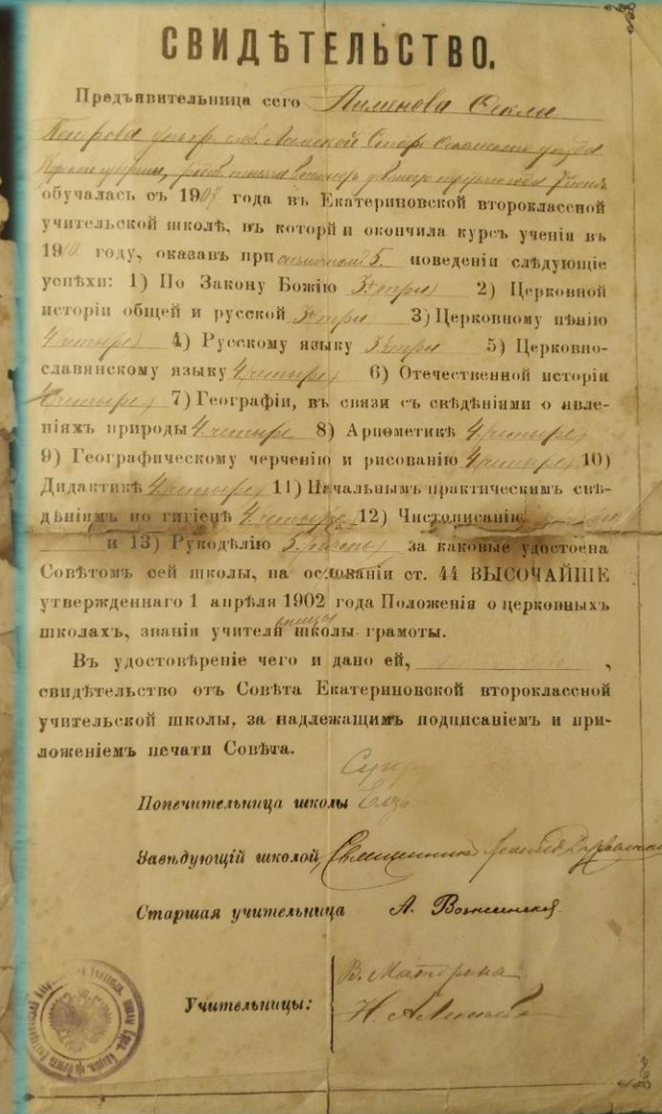 СВИДѢТЕЛЬСТВО.
Предъявительница сего Лименова Фекла
Петрова уѣзда
губерніи,
обучалась съ 1907 года въ Екатериновской второклассной
учительской школѣ, въ которй и окончила курсъ ученія въ
1910 году, оказавъ при отличномъ 5. поведеніи слѣдующіе
успѣхи: 1) По Закону Божію 3+(три) 2) Церковной
исторіи общей и русской 3+(три) 3) Церковному пѣнію
4(четыре) 4) Русскому языку (три) 5) Церковно-
славянскому языку 4(четыре) 6) Отечественной исторіи
4(четыре) 7) Географіи, въ связи съ свѣдѣніями о явле-
ніяхъ природы 4(четыре) 8) Ариѳметикѣ 4(четыре)
9) Географическому черченію и рисованію 4(четыре) 10)
Дидактикѣ 4(четыре) 11) Начальнымъ практическимъ свѣ-
дѣніямъ по гигіенѣ 4(четыре) 12) Чистописанію
и 13) Рукодѣлію 5(пять) за каковые удостоена
Совѣтомъ сей школы, на основаніи ст. 44 ВЫСОЧАЙШЕ
утвержденнаго 1 апрѣля 1902 года Положенія о церковныхъ
школахъ, званія учителя школы грамоты.
Въ удостовѣреніе чего и дано ей, ,
свидѣтельство отъ Совѣта Екатериновской второклассной
учительской школы, за надлежащимъ подписаніемъ и при-
ложеніемъ печати Совѣта.
Попечительница школы
Завѣдующій школой, Священникъ
Старшая учительница А. Вознесенская
Учительницы:
В. Материна
Н.